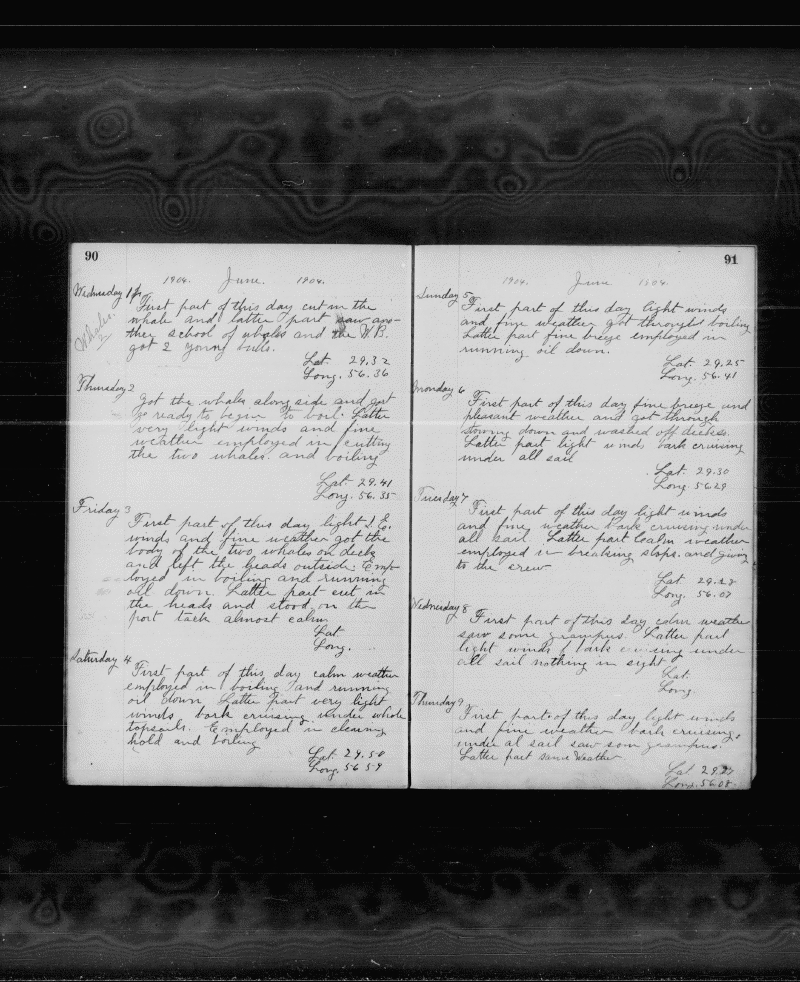 90
1904. June. 1904.
Wednesday 1st
Whales.
2
First part of this day cut in the
whale and latter part saw ano-
ther school of whales and the W.B.
got 2 young bulls.
Lat. 29.32
Long. 56.36
Thursday 2
Got the whales along side and got
ready to begin to boil. Latter
very light winds and fine
weather employed in cutting
the two whales. and boiling
Lat. 29.41
Long. 56.35
Friday 3
First part of this day light S.E.
winds and fine weather got the
body of the two whales on deck
and left the heads outside. Emp-
loyed in boiling and running
oil down. Latter part cut in
the heads and stood on the
port tack almost calm.
Lat.
Long.
Saturday 4
First part of this day calm weather
employed in boiling and running
oil down. Latter part very light
winds, bark cruising under whole
topsails. Employed in cleaning
hold and boiling
Lat. 29.50
Long. 56 59
91
1904. June 1904.
Sunday 5
First part of this day light winds
and fine weather got throught boiling
Latter part fine breeze employed in
running oil down.
Lat. 29.25
Long. 56.41
Monday 6
First part of this day fine breeze and
pleasant weather and got through
stowing down and washed off decks.
Latter part light winds bark cruising
under all sail
Lat. 29.30
Long. 56 29
Tuesday 7
First part of this day light winds
and fine weather bark cruising under
all sail. Latter part calm weather
employed in breaking slops. and giving
to the crew
Lat. 29.28
Long. 56.07
Wednesday 8
First part of this day calm weather
saw some grampus. Latter part
light winds bark cruising under
all sail nothing in sight
Lat.
Long.
Thursday 9
First part of this day light winds
and fine weather bark cruising.
under al sail saw som grampus.
Latter part same Weather.
Lat. 29.
Long. 56.08.